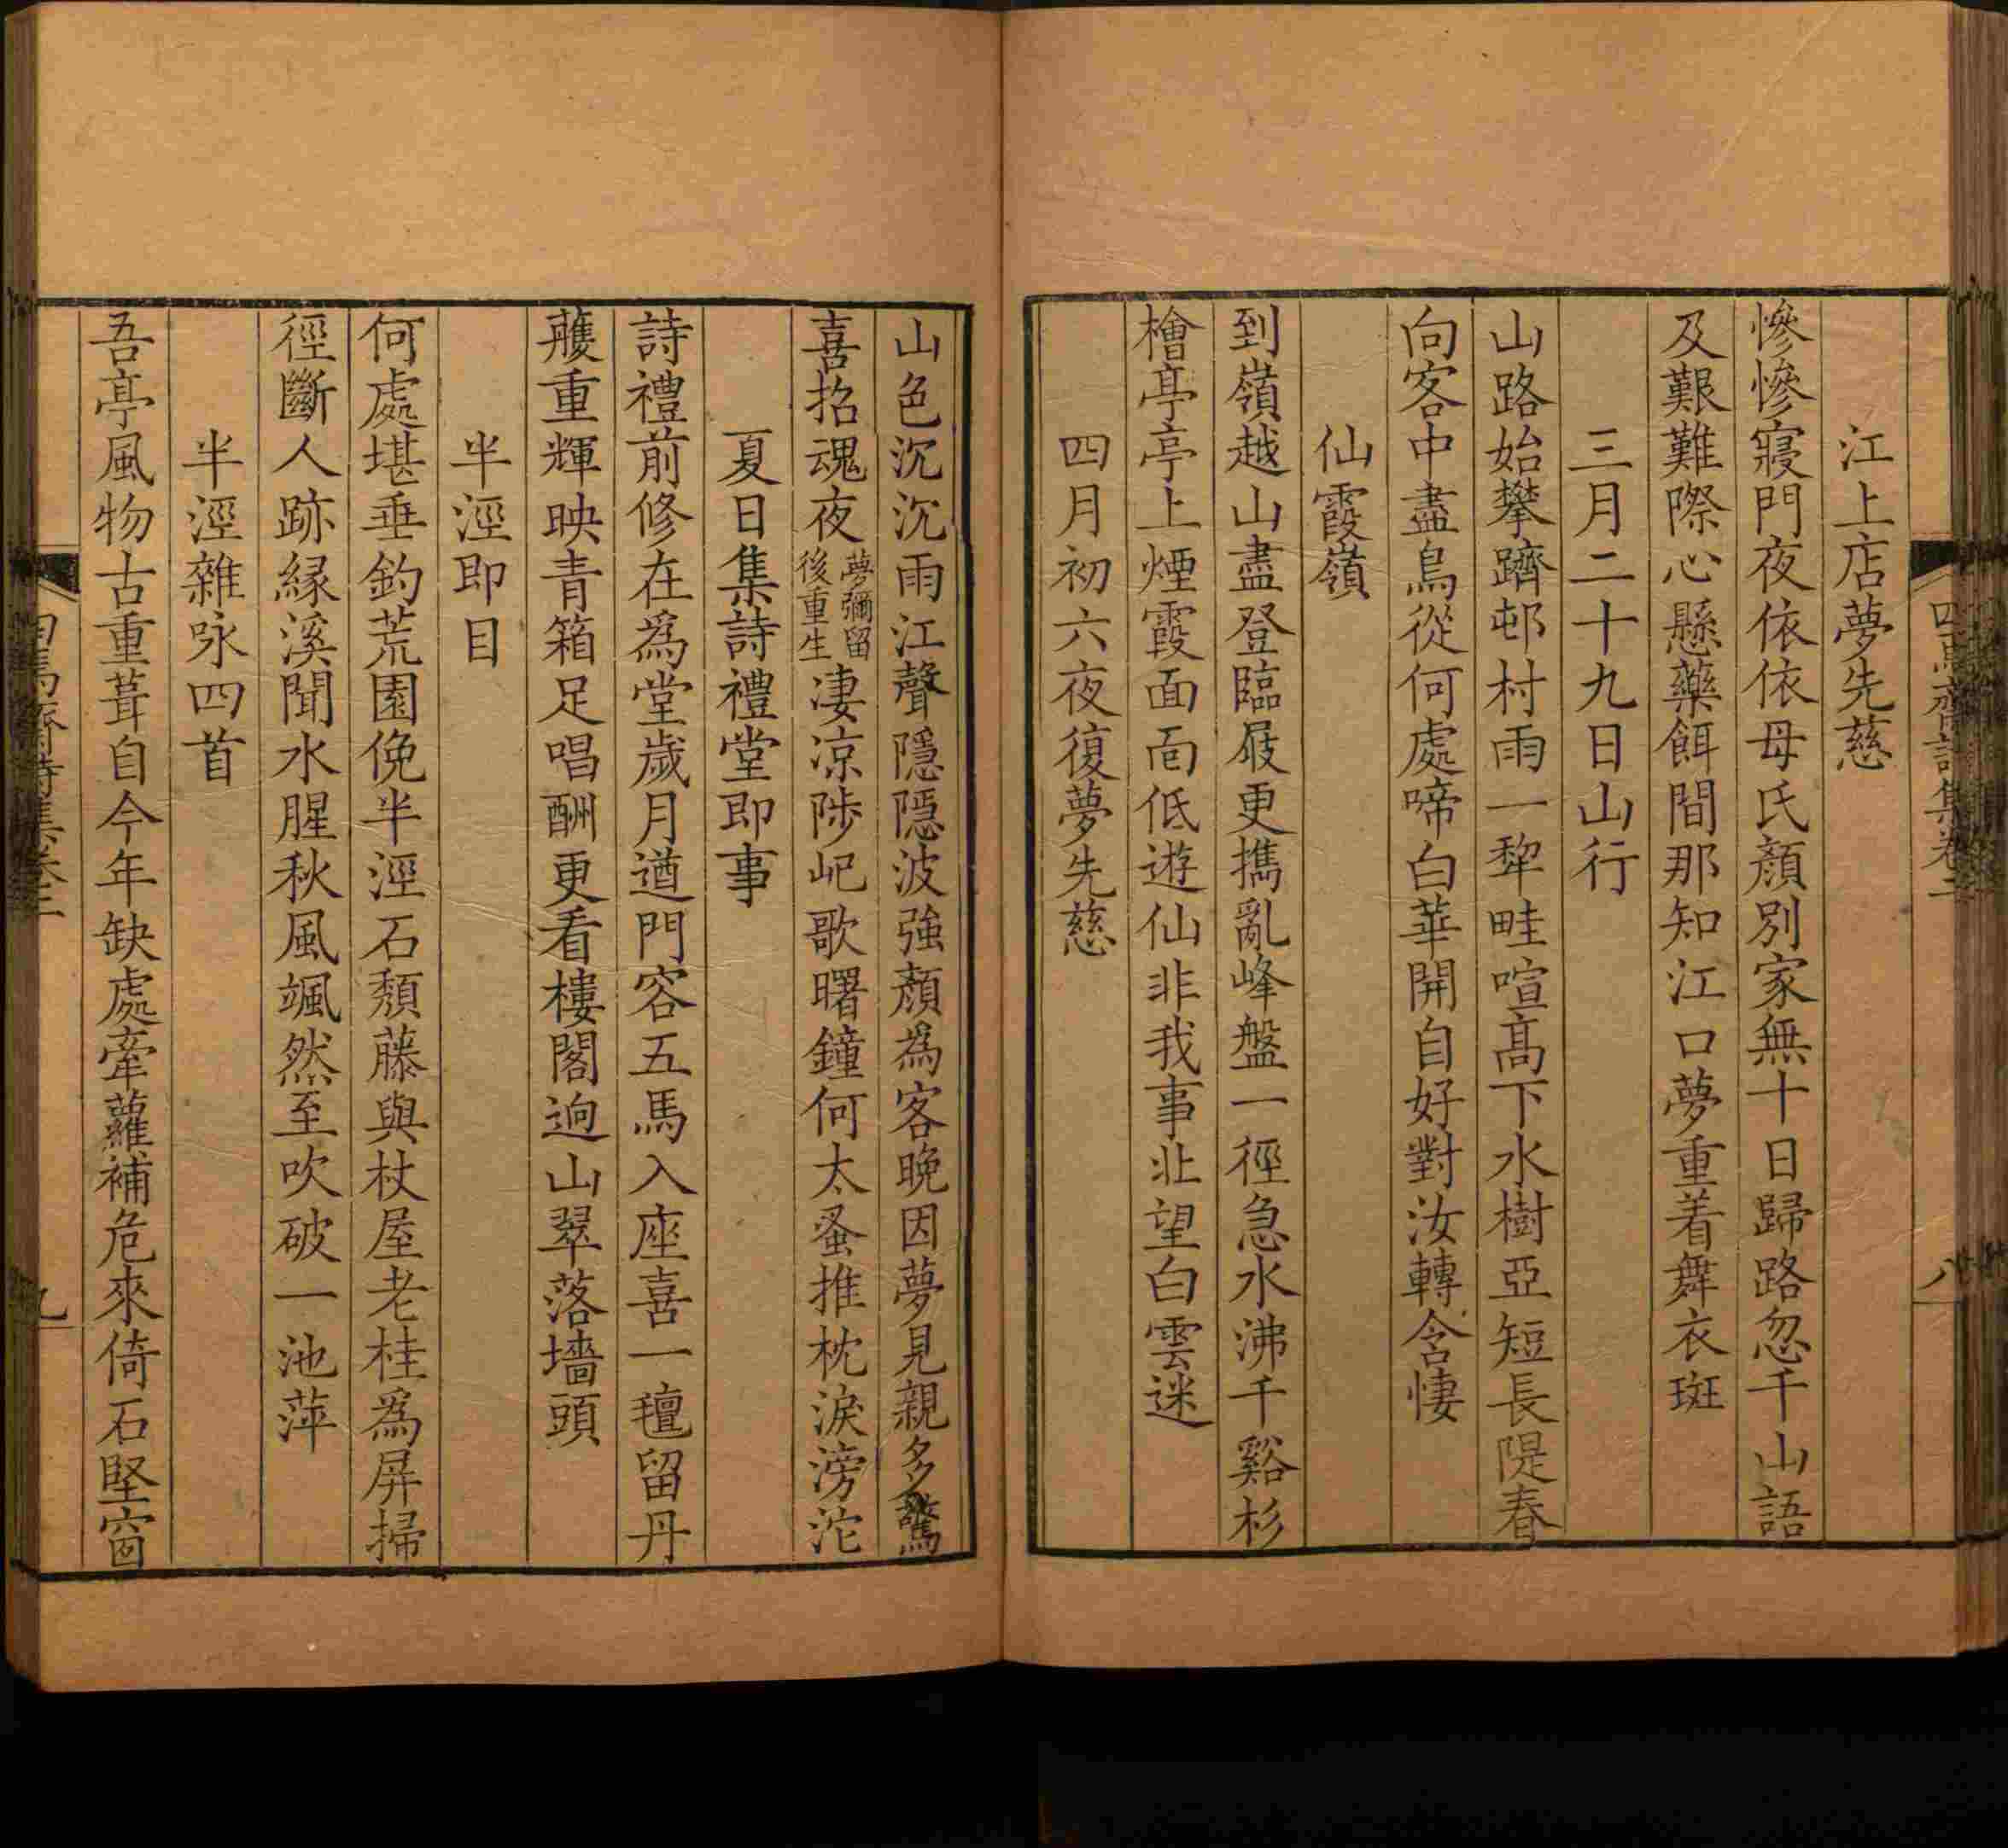 江上店夢先慈
慘慘寢門夜依依母氏顏別家無十日歸路忽千山語
及艱難際心懸藥餌間那知江口夢重着舞衣斑
三月二十九日山行
山路始攀躋邨村雨一犂畦喧高下水樹亞短長隄春
向客中盡鳥從何處啼白華開自好對汝轉含悽
仙霞嶺
到嶺越山盡登臨屐更攜亂峰盤一徑急水沸千谿杉
檜亭亭上煙霞面面低遊仙非我事北望白雲迷
四月初六夜復夢先慈
山色沉沉雨江聲隱隱波強顏為客晚因夢見親多驚
喜招魂夜夢彌留後重生淒凉陟屺歌曙鐘何太蚤推枕淚滂沱
夏日集詩禮堂即事
詩禮前修在爲堂歲月遒門容五馬入座喜一氊留丹
雘重輝映青箱足唱酬更看樓閣逈山翠落墻頭
半淫即目
何處堪垂釣荒園俛半涇石頹藤與杖屋老桂爲屏掃
徑斷人跡緣溪聞水腥秋風颯然至吹破一池萍
半涇雜咏四首
吾亭風物古重葺自今年缺處牽蘿補危來倚石堅窗
四焉齋詩集卷二
八
四焉齋詩集卷二
九